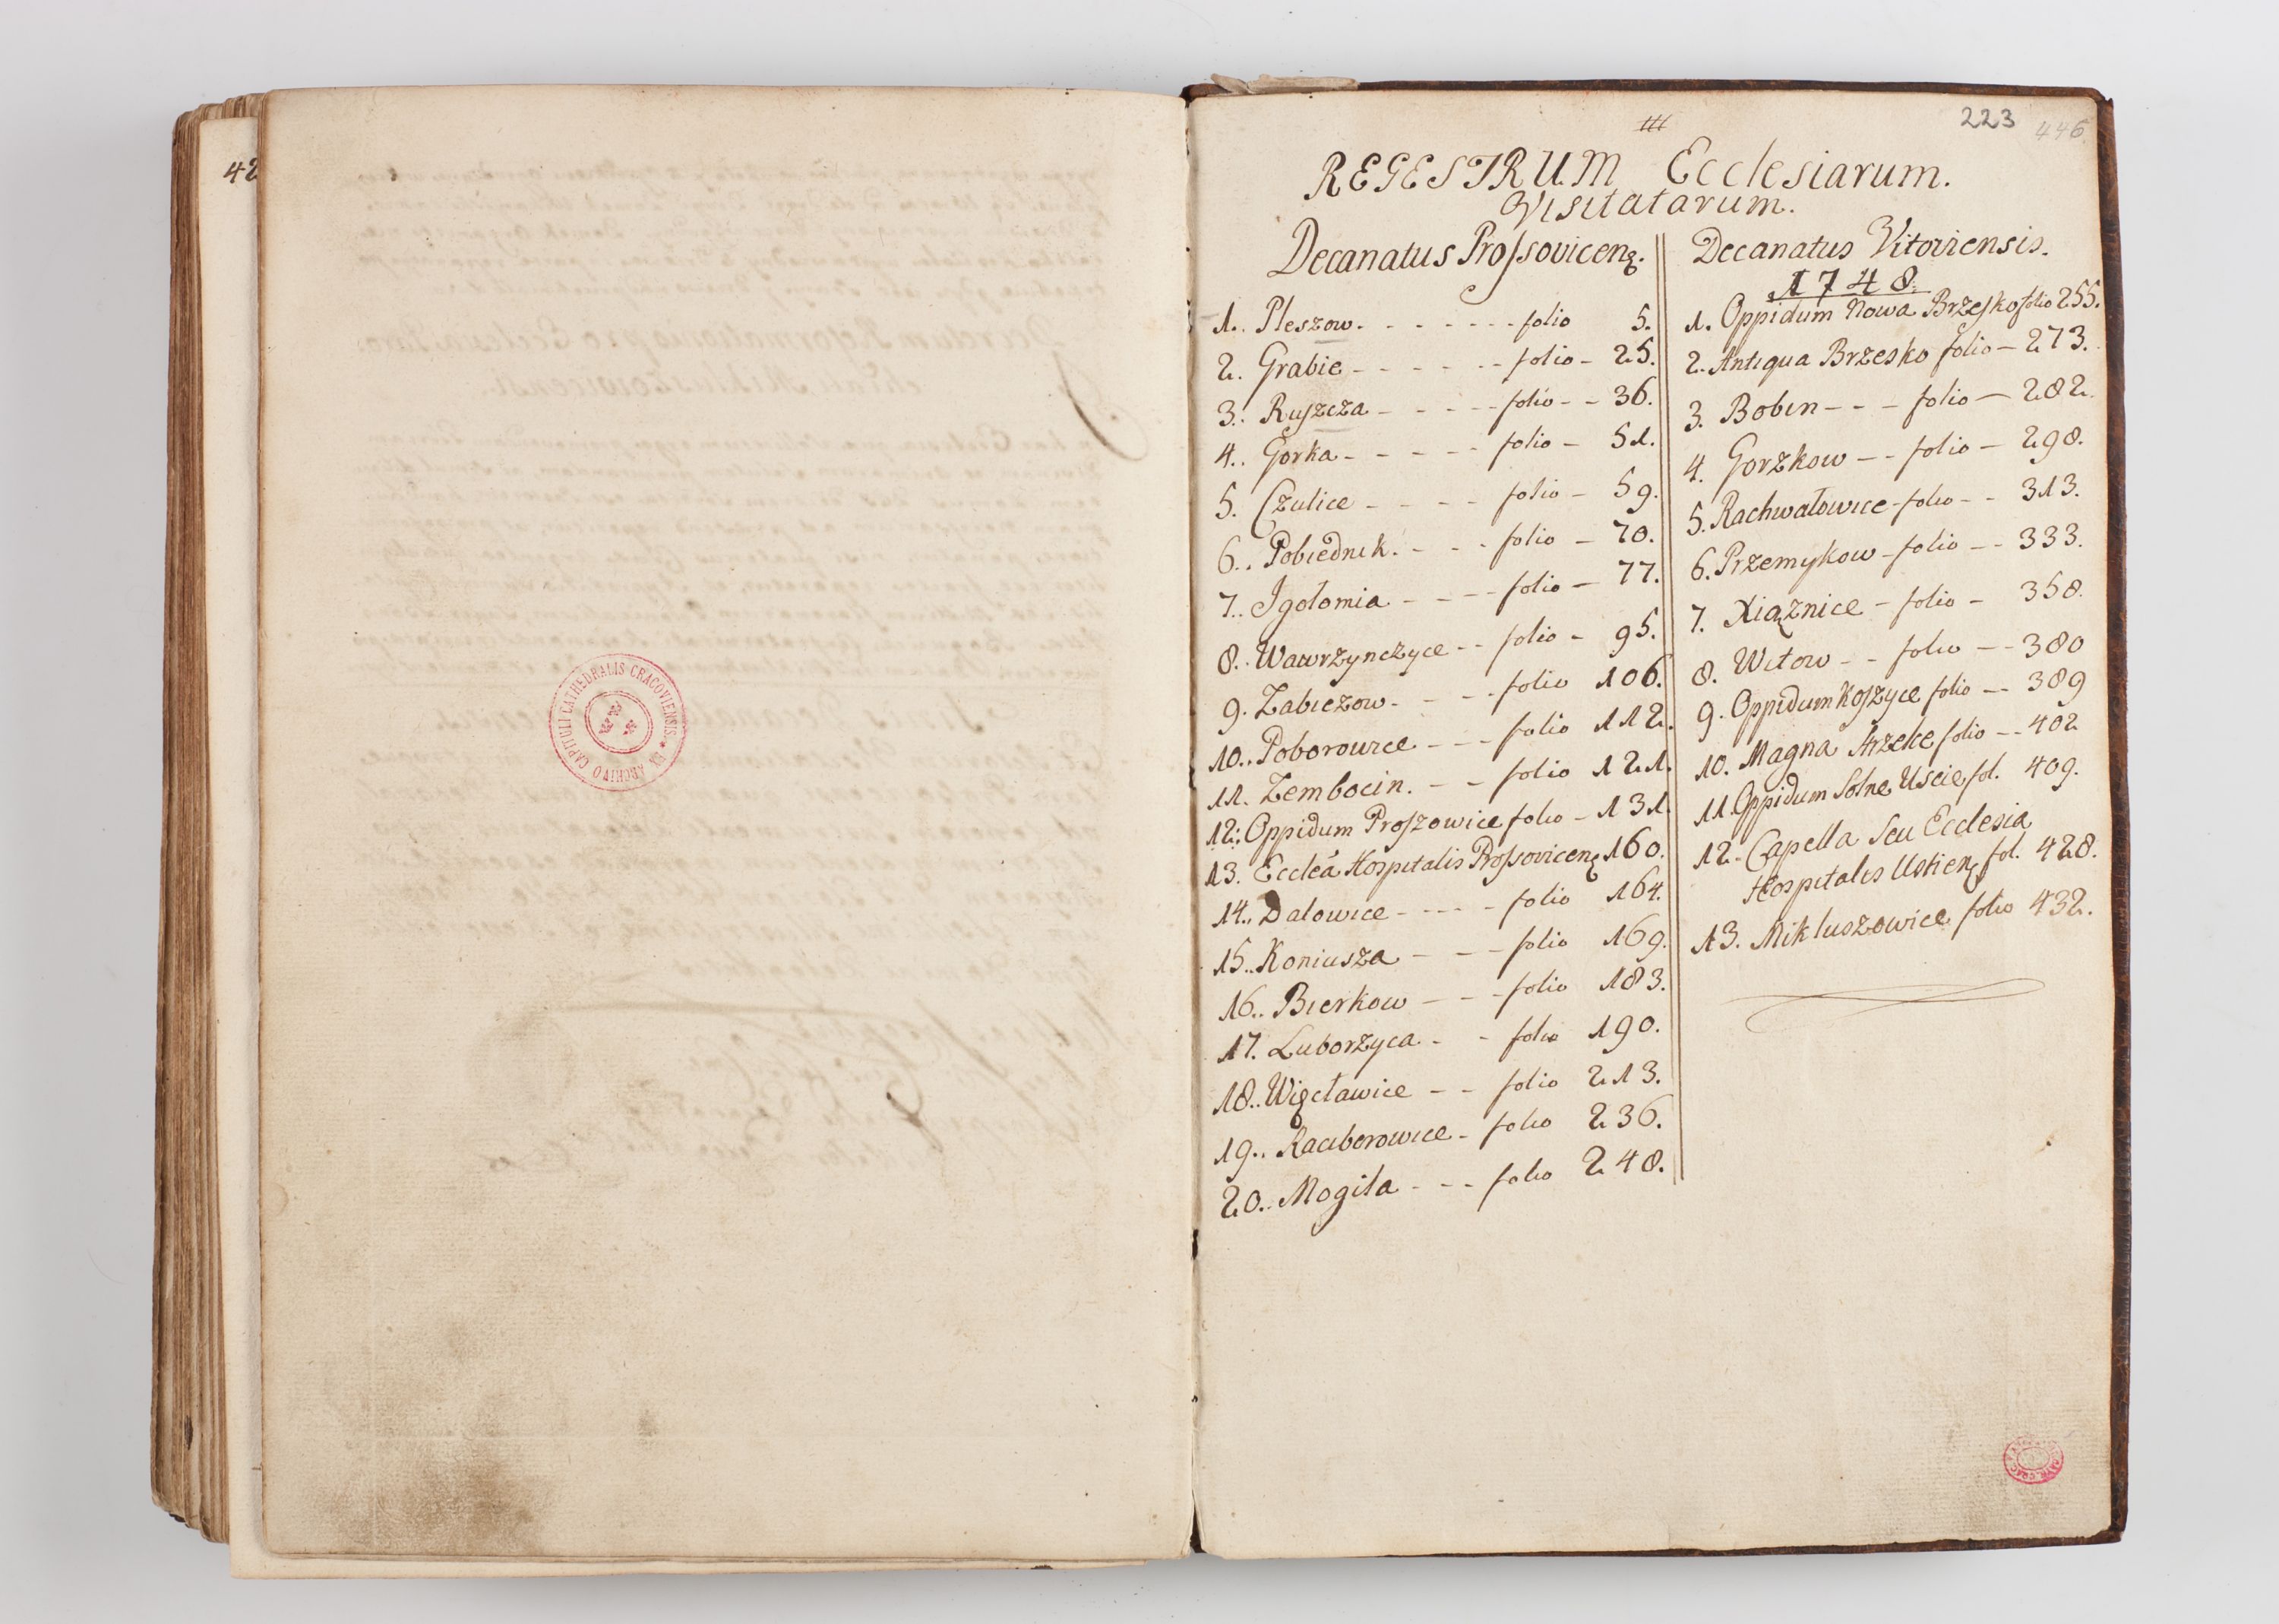 42
CAPITULI CATHEDRALIS CRACOVIENSIS * EX ARCHIVO
223 446
REGESTRUM Ecclesiarum.
Visitatarum.
Decanatus Prossovicen.
1. Pleszow. - - - - - - folio 5.
2. Grabie - - - - - - folio - 25.
3. Ruszcza - - - - - folio - - 36.
4. Gorka - - - - - folio - 51.
5. Czulice - - - - folio - 59.
6. Pobiednik. - - - folio - 70.
7. Igołomia - - - - folio - 77.
8. Wawrzynczyce - - folio - 95.
9. Zabiezow - - - folio 106.
10. Poborowice - - - folio 112.
11. Zembocin. - - folio 121.
12. Oppidum Proszowice folio - 131.
13. Ecclea Hospitalis Prossovicen 160.
14. Dalowice - - - - folio 164.
15. Koniusza - - - folio 169.
16. Bierkow - - - folio 183.
17. Luborzyca - - folio 190.
18. Więcławice - - folio 213.
19. Raciborowice - folio 236.
20. Mogiła - - - folio 248.
Decanatus Vitoviensis.
1748.
1. Oppidum Nowa Brzesko folio 255.
2. Antiqua Brzesko folio - 273.
3. Bobin - - - folio - 282.
4. Gorzkow - - folio - 298.
5. Rachwałowice - folio - - 313.
6. Przemykow - folio - - 333.
7. Xiąznice - folio - 358.
8. Witow - - folio - - 380
9. Oppidum Koszyce folio - 389
10. Magna Strzelce folio - - 402
11. Oppidum Solne Uscie fol. 409.
12. Capella Seu Ecclesia
Hospitalis Ustien fol. 428.
13. Mikluszowice folio 432.